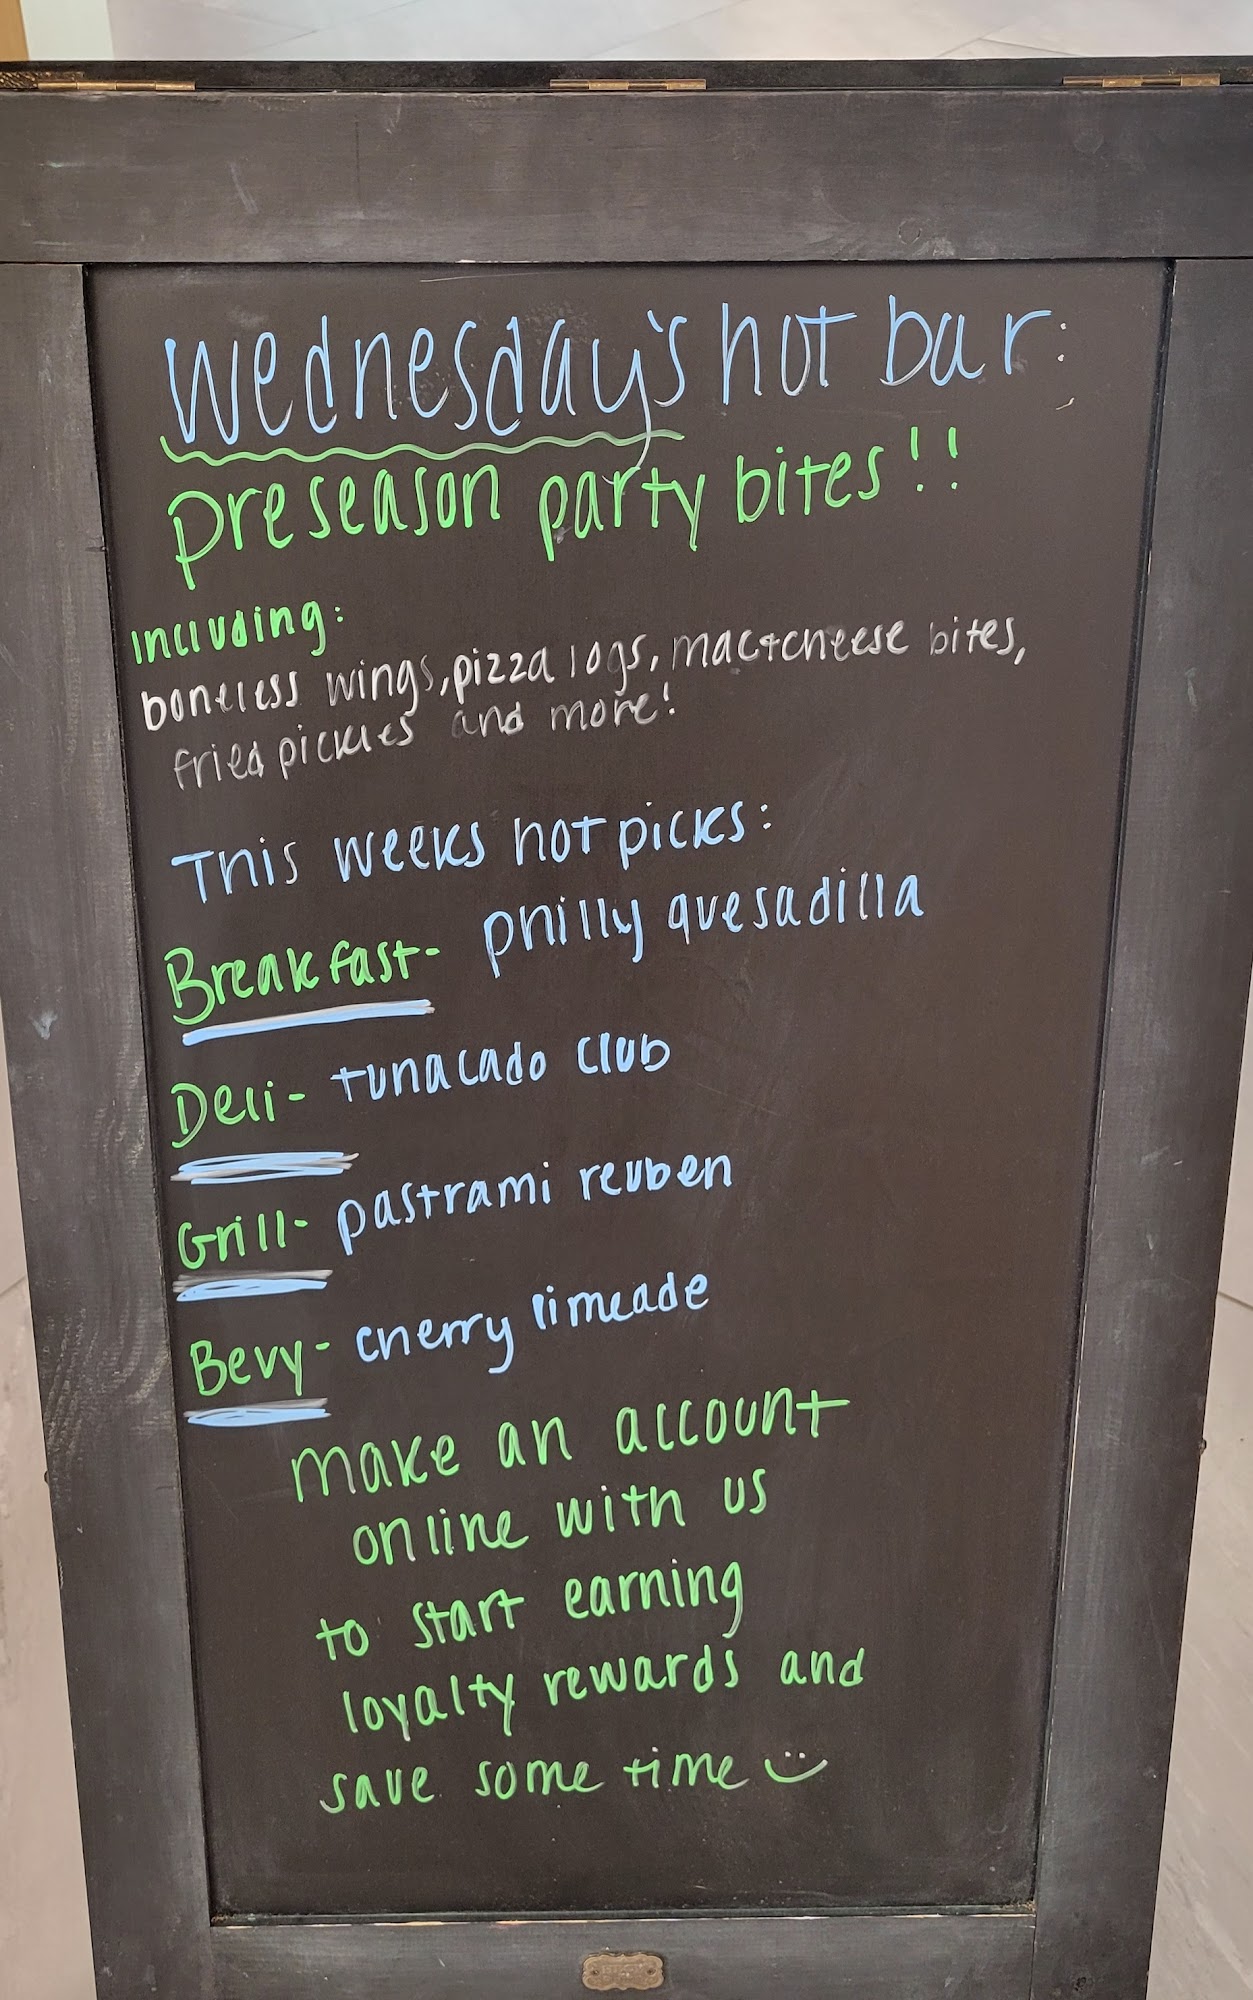 Wednesday's hot bar:
preseason party bites!!
Including:
boneless wings, pizza logs, mac+cheese bites,
fried pickles and more!
This weeks hot picks:
Breakfast- philly quesadilla
Deli- tunacado club
Grill- pastrami reuben
Bevy- cherry limeade
make an account
online with us
to start earning
loyalty rewards and
save some time